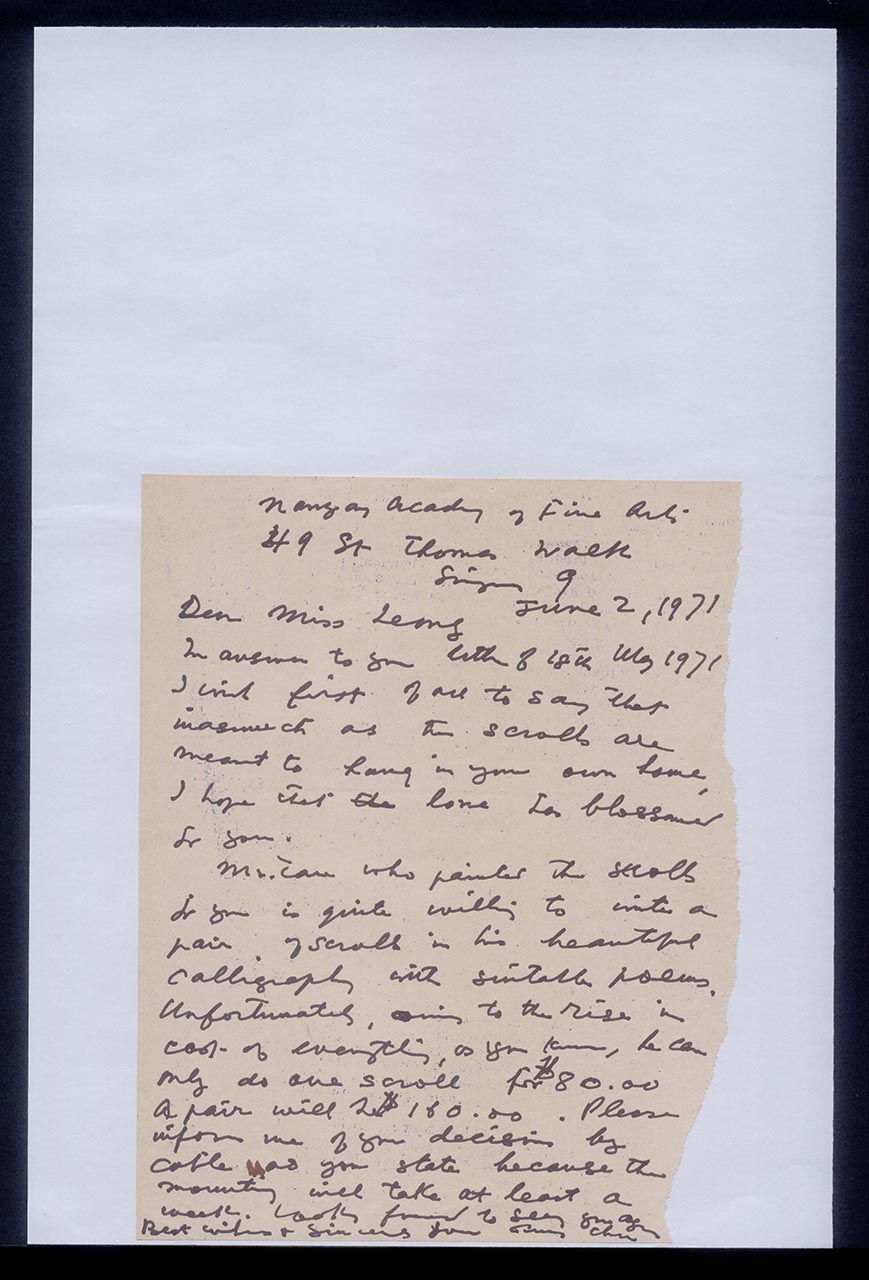 Nanyang Academy of Fine Arts
49 St Thomas Walk
Singapore 9
June 2, 1971
Dear Miss Leong
In answer to your letter of 18th May 1971
I wish first of all to say that
inasmuch as the scrolls are
meant to hang in your own home,
I hope that the love has blossomed
for you.
Mr. who painted the scrolls
for you is quite willing to write a
pair of scrolls in his beautiful
calligraphy with suitable poems.
Unfortunately, owing to the rise in
cost of everything, as you know, he can
only do one scroll for $80.00
A pair will be $160.00. Please
inform me of your decision by
cable as you state because the
mounting will take at least a
week. Looking forward to seeing you again
Best wishes & Sincerely Your Chen